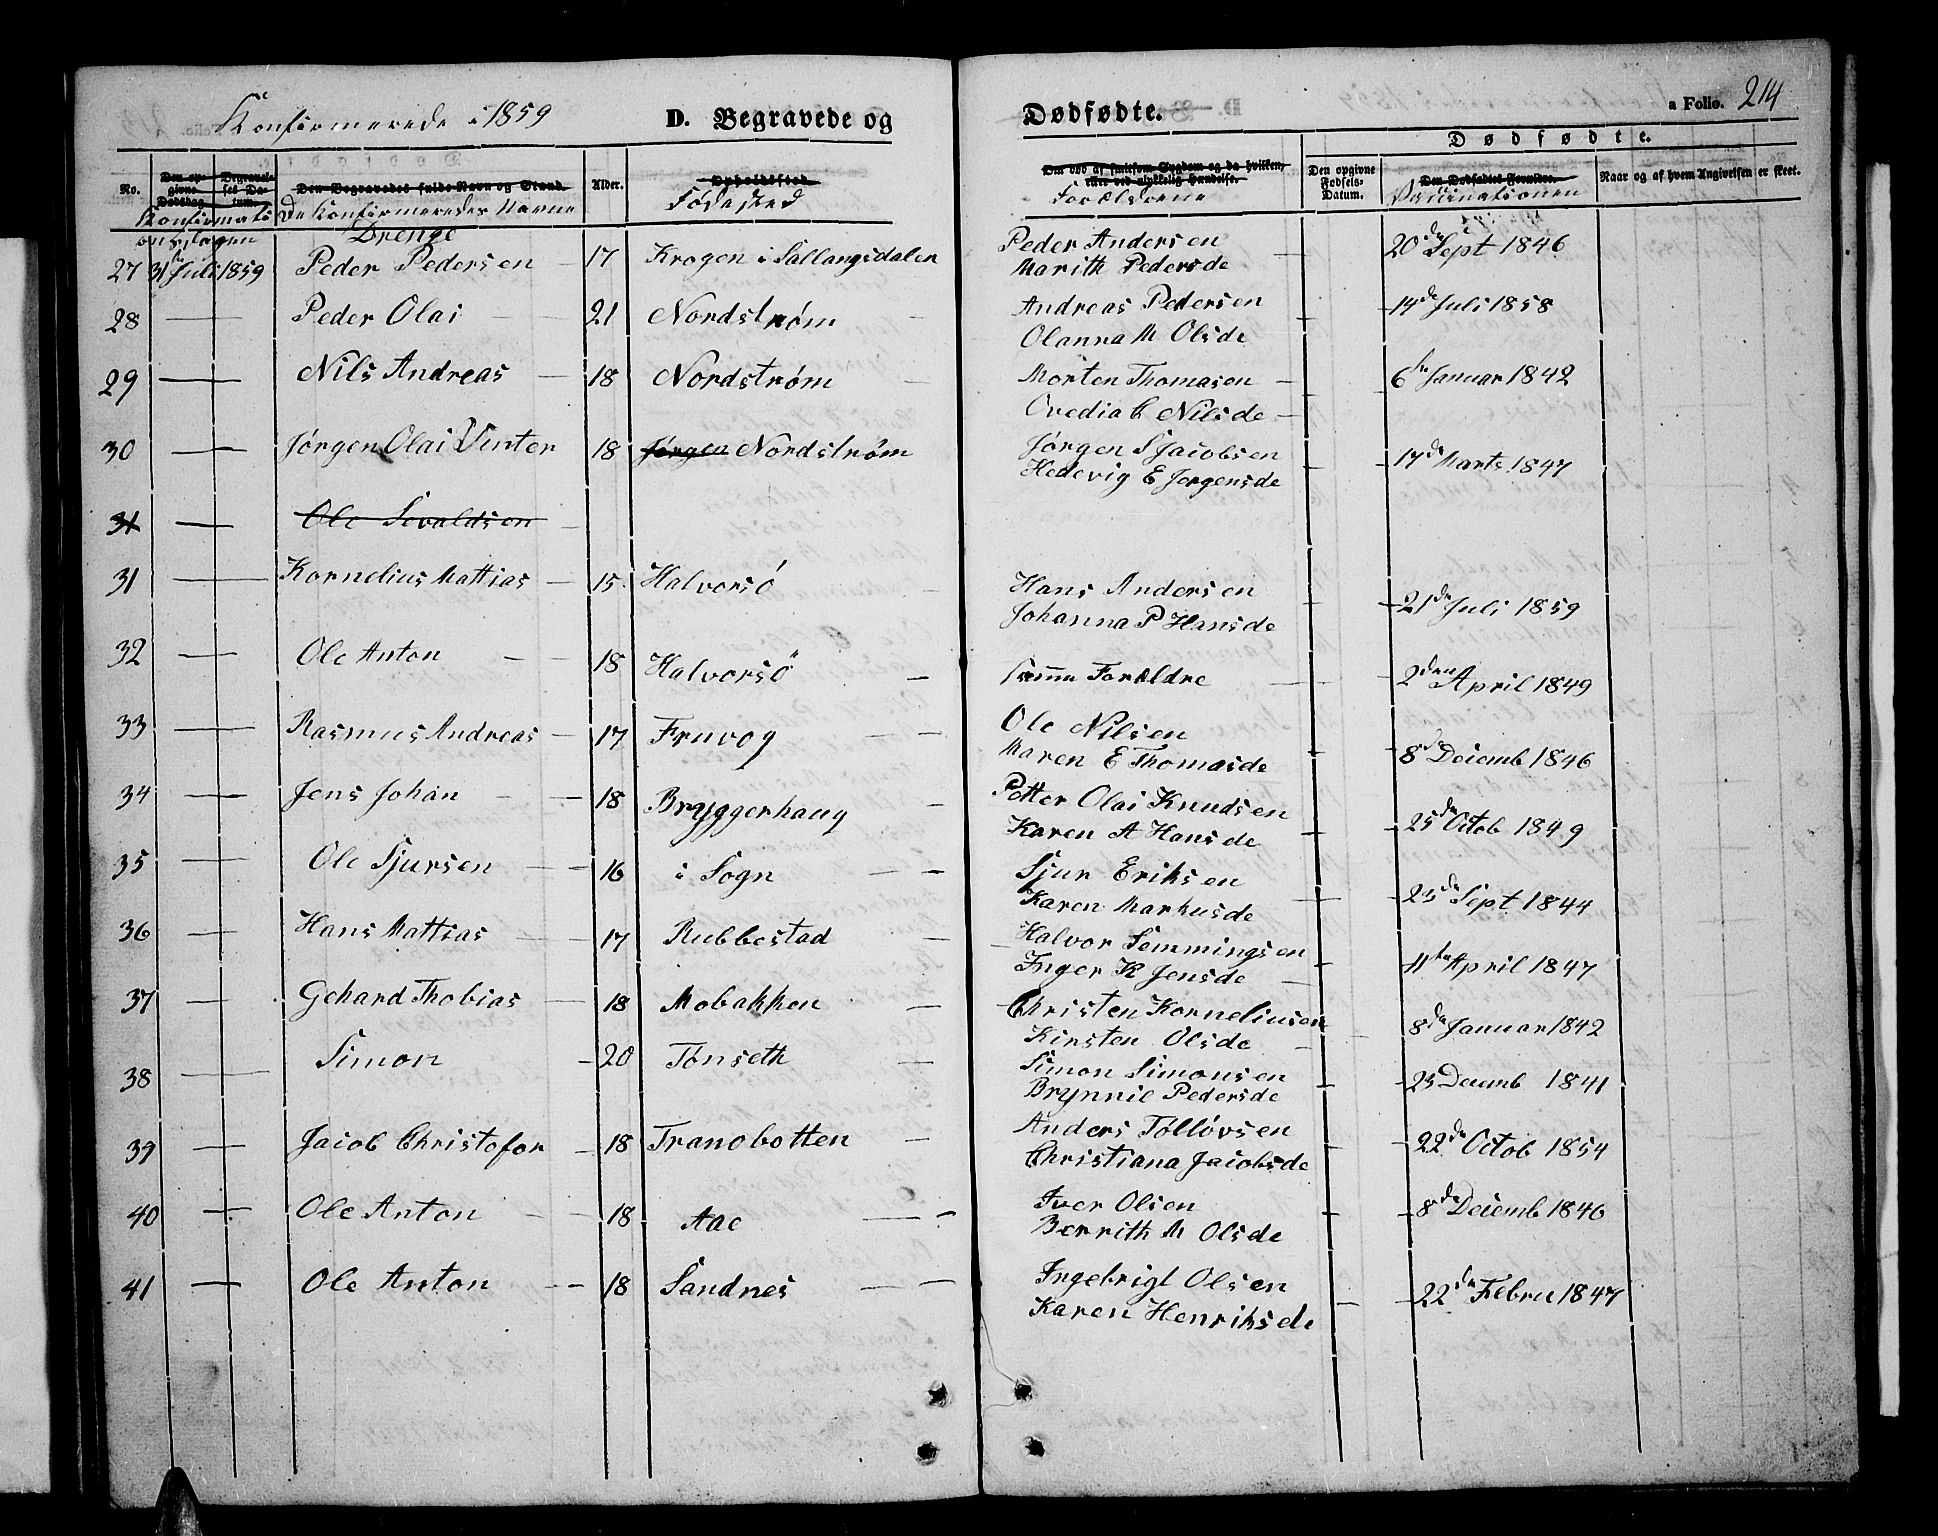 Konfirmerede i 1859 D. Begravede og Dødfødte. a Folio. 214
Dødfødte.
No. Den opgivne Dødsdag. Begravelses Datum. Den Begravedes fulde Navn og Stand. Alder. Opholdssted. Om død af smitsom Sygdom og da hvilken, eller ved ulykkelig Hændelse. Den opgivne Fødsels-Datum. Den Dødfødtes Forældre. Naar og af hvem Angivelsen er skeet.
Konfirmationsdagen De Konfirmeredes Navne Fødested Forældrene Vaccinationen
Drenge
27 31te Juli 1859 Peder Pedersen 17 Krogen i Sallangsdalen Peder Andersen 20de Sept 1846
Marith Pedersde
28 Peder Olai 21 Nordstrøm Andreas Pedersen 14de Juli 1858
Olanna M Olsde
29 Nils Andreas 18 Nordstrøm Morten Thomasen 6te Januar 1842
Ovedia C Nilsde
30 Jørgen Olai Vinter 18 Jørgen Nordstrøm Jørgen S Jacobsen 17de Marts 1847
Hedevig E Jørgensde
31 Ole Sevaldsen
31 Kornelius Mattias 15 Halvorsö Hans Andersen 21de Juli 1859
Johanna P Hansde
32 Ole Anton 18 Halvorsö Samme Forældre 2den April 1849
33 Rasmus Andreas 17 Fruvog Ole Nilsen 8de Decemb 1846
Maren E Thomasde
34 Jens Johan 18 Bryggerhaug Petter Olai Knudsen 25de Octob 1849
Karen A Hansde
35 Ole Sjursen 16 i Sogn Sjur Eriksen 23de Sept 1844
Karen Markusde
36 Hans Mattias 17 Rubbestad Halvor Semmingsen 11te April 1847
Inger K Jensde
37 Gehard Thobias 18 Mobakken Christen Korneliusen 8de Januar 1842
Kirsten Olsde
38 Simon 20 Tønseth Simon Simonsen 23 Decemb 1841
Brynnil Pedersde
39 Jacob Christofor 18 Tranobotten Anders Tølløvsen 22de Octob 1854
Christiana Jacobsde
40 Ole Anton 18 Aae Iver Olsen 8de Decemb 1846
Berrith M Olsde
41 Ole Anton 18 Sandnes Ingebrigt Olsen 22de Febru 1847
Karen Henriksde